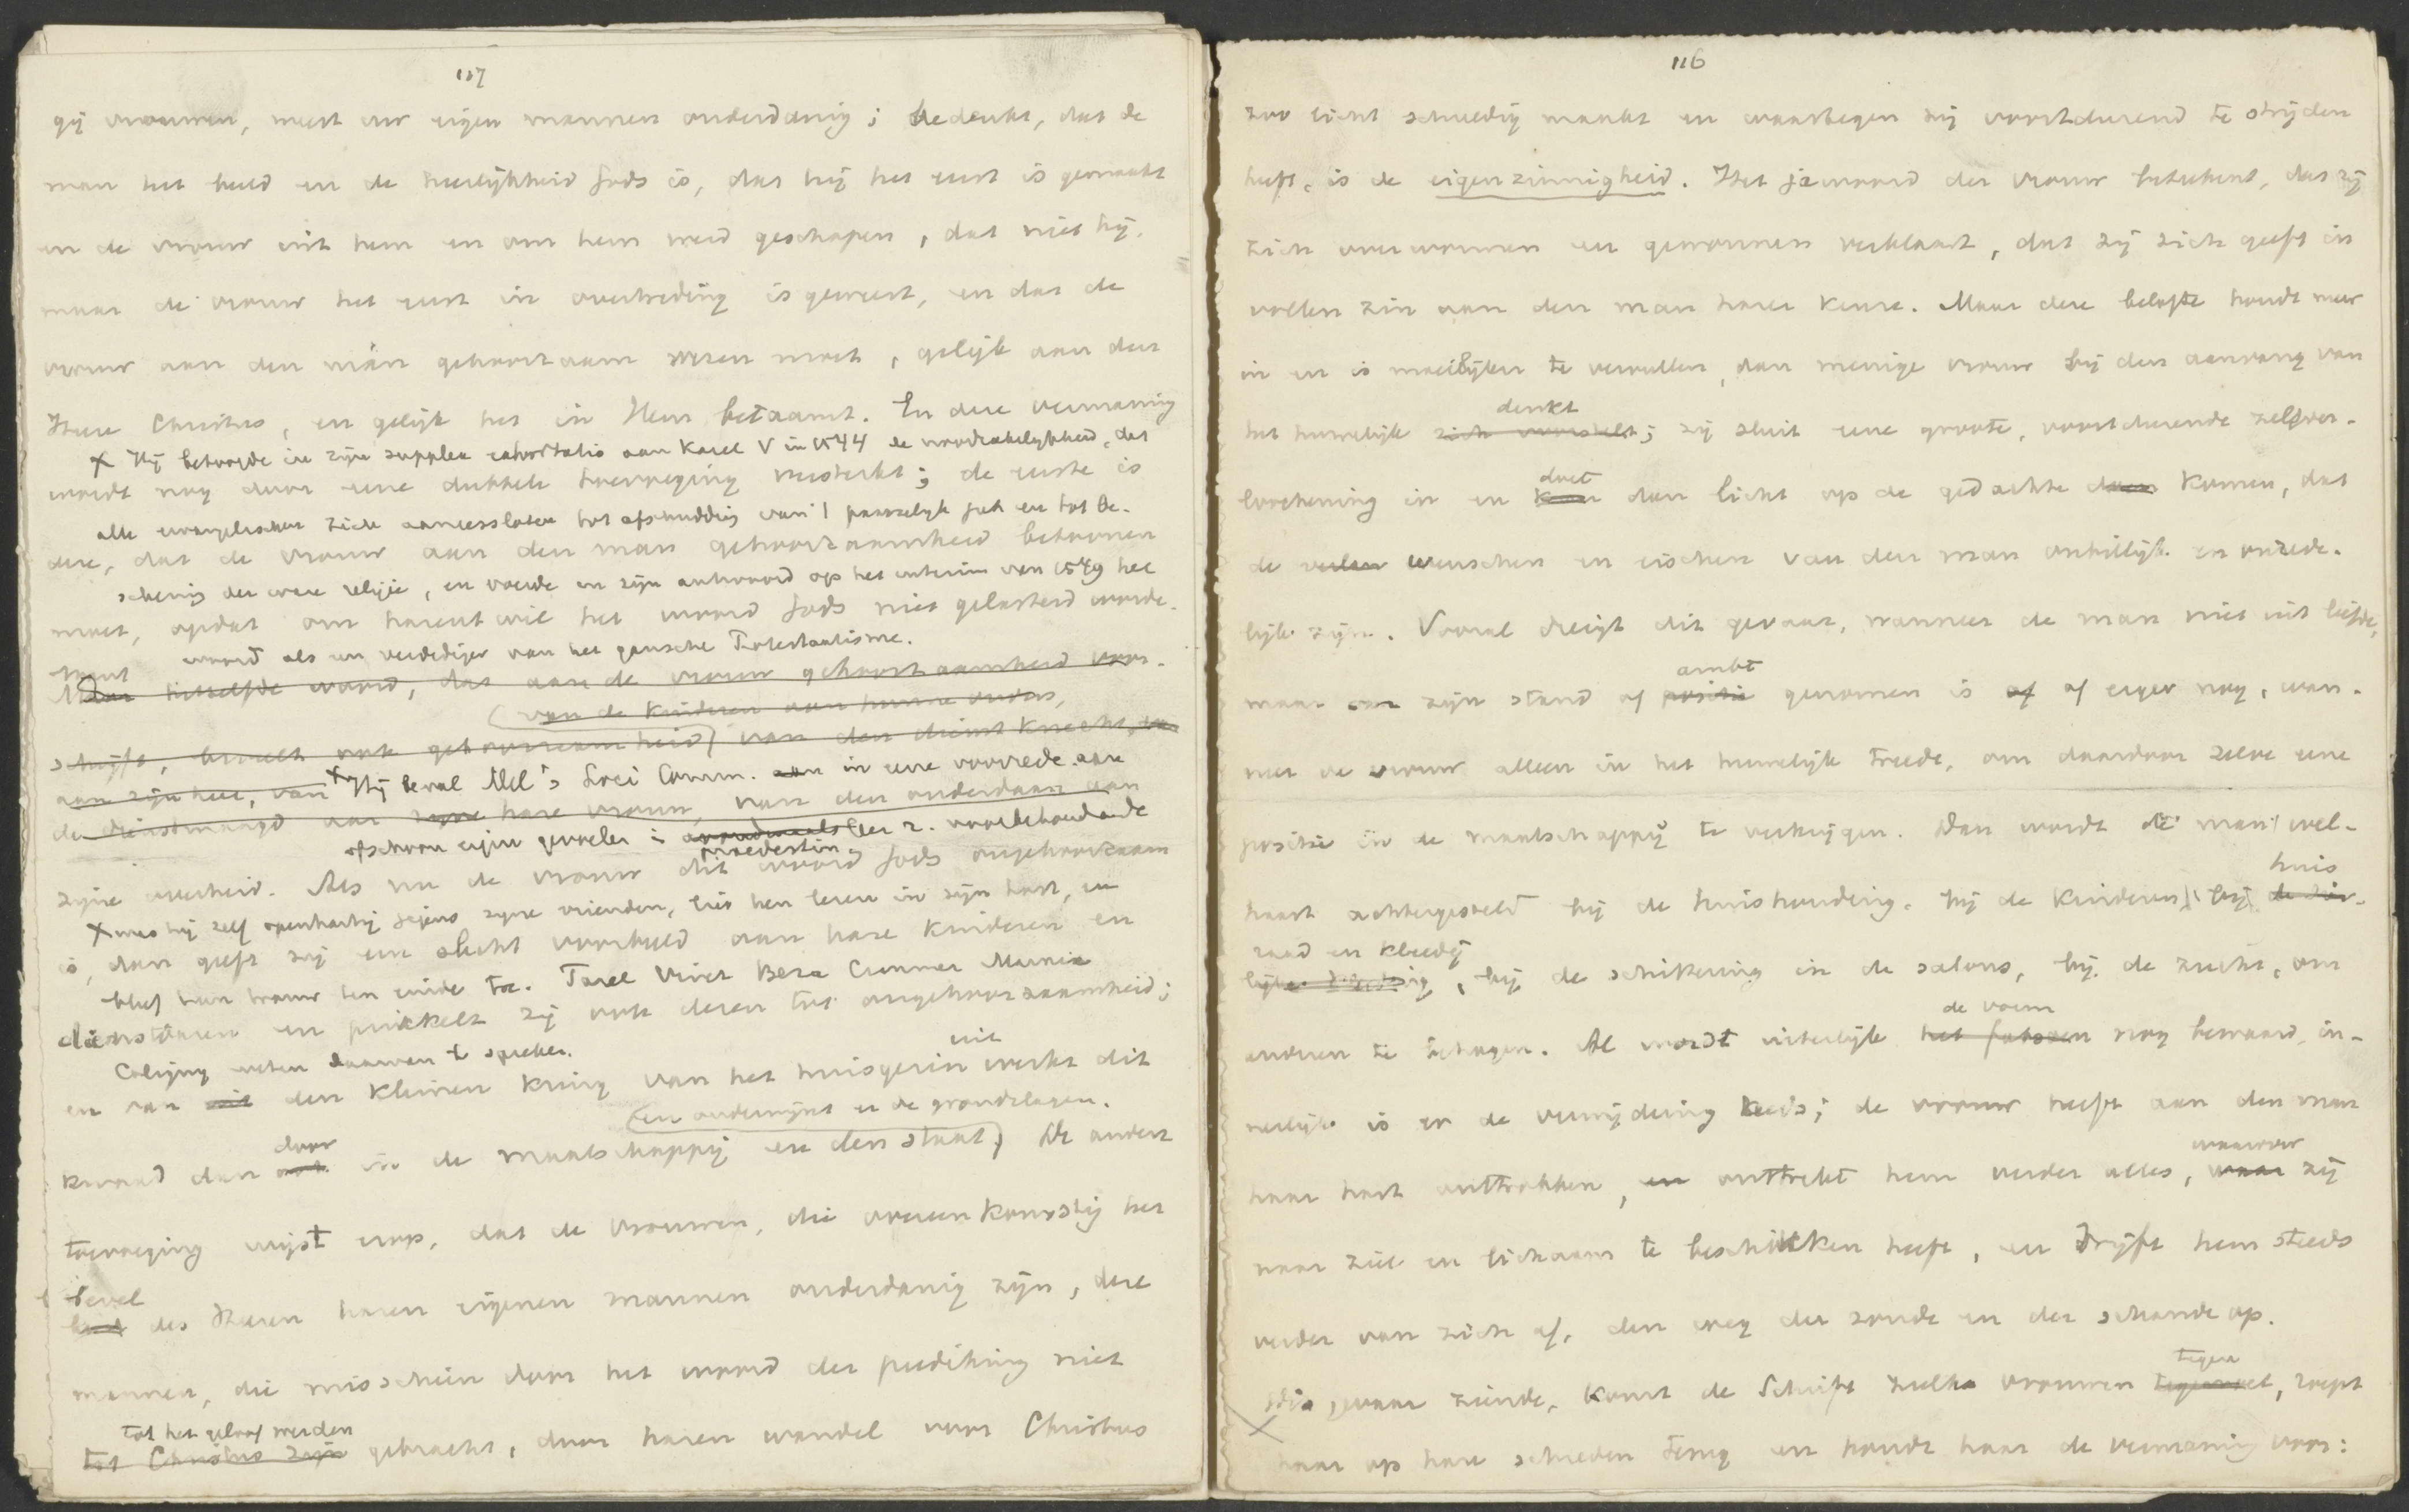 117
gij vrouwen, weest uw eigen mannen onderdanig; bedenkt, dat de
man het beeld en de heerlijkheid Gods is, dat hij het eerst is gemaakt
en de vrouw uit hem en om hem werd geschapen, dat niet hij,
maar de vrouw het eerst in overtreding is geweest, en dat de
vrouw aan den man gehoorzaam wezen moet, gelijk aan den
Heere Christus, en gelijk het in Hem betaamt. En deze vermaning
x Hij betoogde in zijn supplex exhortatio aan Karel V in 1544 de noodzakelijkheid, dat
wordt nog door eene dubbele toevoeging versterkt; de eerste is
alle evangelischen zich aaneensloten tot afschudding van 't pauselijk juk en tot be-
deze, dat de vrouw aan den man gehoorzaamheid betoonen
scherming der ware religie, en voerde in zijn antwoord op het interim van 1549 het
moet, opdat om harentwil het woord Gods niet gelasterd worde.
woord als een verdediger van het gansche Protestantisme.
Want
hetzelfde woord, dat aan de vrouw gehoorzaamheid voor-
(van de kinderen aan hunne ouders,
schrijft, beveelt ook gehoorzaamheid) van den dienstknecht
aan zijn heer, van x Hij beval Mel's Loci Comm. aan in eene voorrede aan
de dienstmaagd aan hare vrouw, van den onderdaan aan
ofschoon eigen gevoelen i avondmaalsleer z. voorbehoudende
praedestin.
zijne overheid. Als nu de vrouw dit woord Gods ongehoorzaam
x was hij zelf openhartig jegens zijne vrienden, liet hen lezen in zijn hart, en
is, dan geeft zij een slecht voorbeeld aan hare kinderen en
bleef hun trouw ten einde toe. Farel Viret Beza Cranmer Marnix
dienstboden en prikkelt zij ook dezen tot ongehoorzaamheid;
Coligny weten daarvan te spreken.
uit
en van den kleinen kring van het huisgezin werkt dit
(en ondermijnt er de grondslagen.
door
kwaad dan in de maatschappij en den staat) De andere
toevoeging wijst erop, dat de vrouwen, die overeenkomstig het
bevel
des Heeren haren eigenen mannen onderdanig zijn, deze
mannen, die misschien door het woord der prediking niet
tot het geloof werden
tot Christus zijn gebracht, door haren wandel voor Christus
116
zoo licht schuldig maakt en waartegen zij voortdurend te strijden
heeft, is de eigenzinnigheid. Het jawoord der vrouw beteekent, dat zij
zich overwonnen en gewonnen verklaart, dat zij zich geeft in
vollen zin aan den man harer keuze. Maar deze belofte houdt meer
in en is moeilijker te vervullen, dan menige vrouw bij den aanvang van
denkt
het huwelijk zich voorstelt; zij sluit eene groote, voortdurende zelfver-
doet
loochening in en kan dan licht op de gedachte doen komen, dat
de wenschen en eischen van den man onbillijk en onrede-
lijk zijn. Vooral dreigt dit gevaar, wanneer de man niet uit liefde,
ambt
maar om zijn stand of positie genomen is of erger nog, wan-
neer de vrouw alleen in het huwelijk treedt, om daardoor zelve eene
positie in de maatschappij te verkrijgen. Dan wordt de man wel-
huis
haast achtergesteld bij de huishouding, bij de kinderen, bij
raad en kleedij
bij de schikking in de salons, bij de zucht, om
de vorm
anderen te behagen. Al wordt uiterlijk het fatsoen nog bewaard, in-
nerlijk is er de verwijdering reeds; de vrouw heeft aan den man
waarover
haar hart onttrokken, en onttrekt hem verder alles, waar zij
naar ziel en lichaam te beschikken heeft, en drijft hem steeds
verder van zich af, den weg der zonde en der schande op.
tegen
Dit gevaar ziende, komt de Schrift zulke vrouwen, roept
haar op hare schreden terug en houdt haar de vermaning voor: